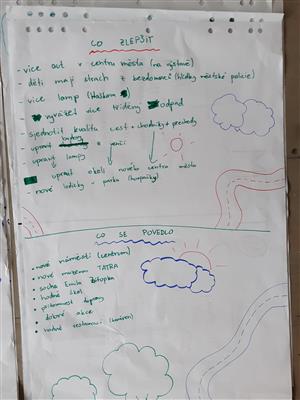 CO ZLEPŠIT
- více aut v centru města (na výstavě)
- děti mají strach z bezdomovců (hlídky městské policie)
- více lamp
- vyvážet více tříděný odpad
- sjednotit kvalitu cest + chodníky + přechody
- upravit
- upravit lampy
- upravit okolí nového centra města
- nové lavičky - parku
CO SE POVEDLO
- nové náměstí (centrum)
- nové muzeum TATRA
- socha Emila Zátopka
- hodně škol
- přítomnost dopravy
- dobré akce
- hodně restaurací